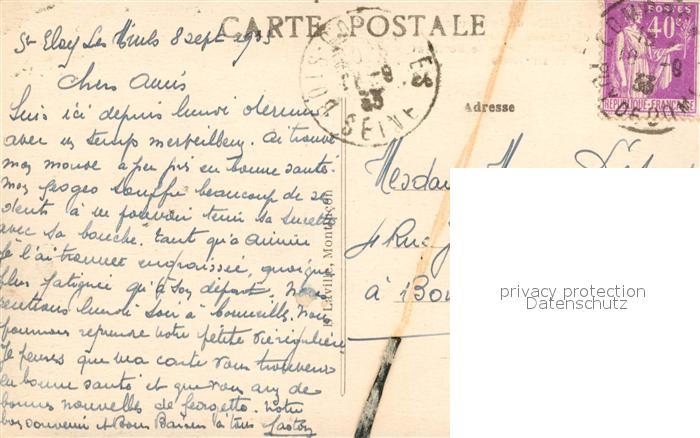 CARTE POSTALE
St Eloy Les Mines 8 sept 1935
Chers Amis
Suis ici depuis lundi dernier
avec un temps merveilleux. Ai trouvé
mon à peu près en bonne santé
mon Georges souffre beaucoup de ses
dents à ne pouvoir tenir sa sucette
avec sa bouche. Tant qu'à Aimée
Je l'ai trouvée engraissée, quoique
plus fatiguée qu'à son départ. Nous
rentrons lundi soir à Nous
pourrons reprendre notre petite vie régulière
Je pense que ma carte vous trouvera
en bonne santé et que vous avez de
bonnes nouvelles de Georgette. Votre
bon souvenir et Bons Baisers à tous Gaston
Adresse
Mesdames
4 Rue
à Bo
Laville, Montluçon
POSTES
40c
REPUBLIQUE FRANÇAISE
SEINE
privacy protection
Datenschutz